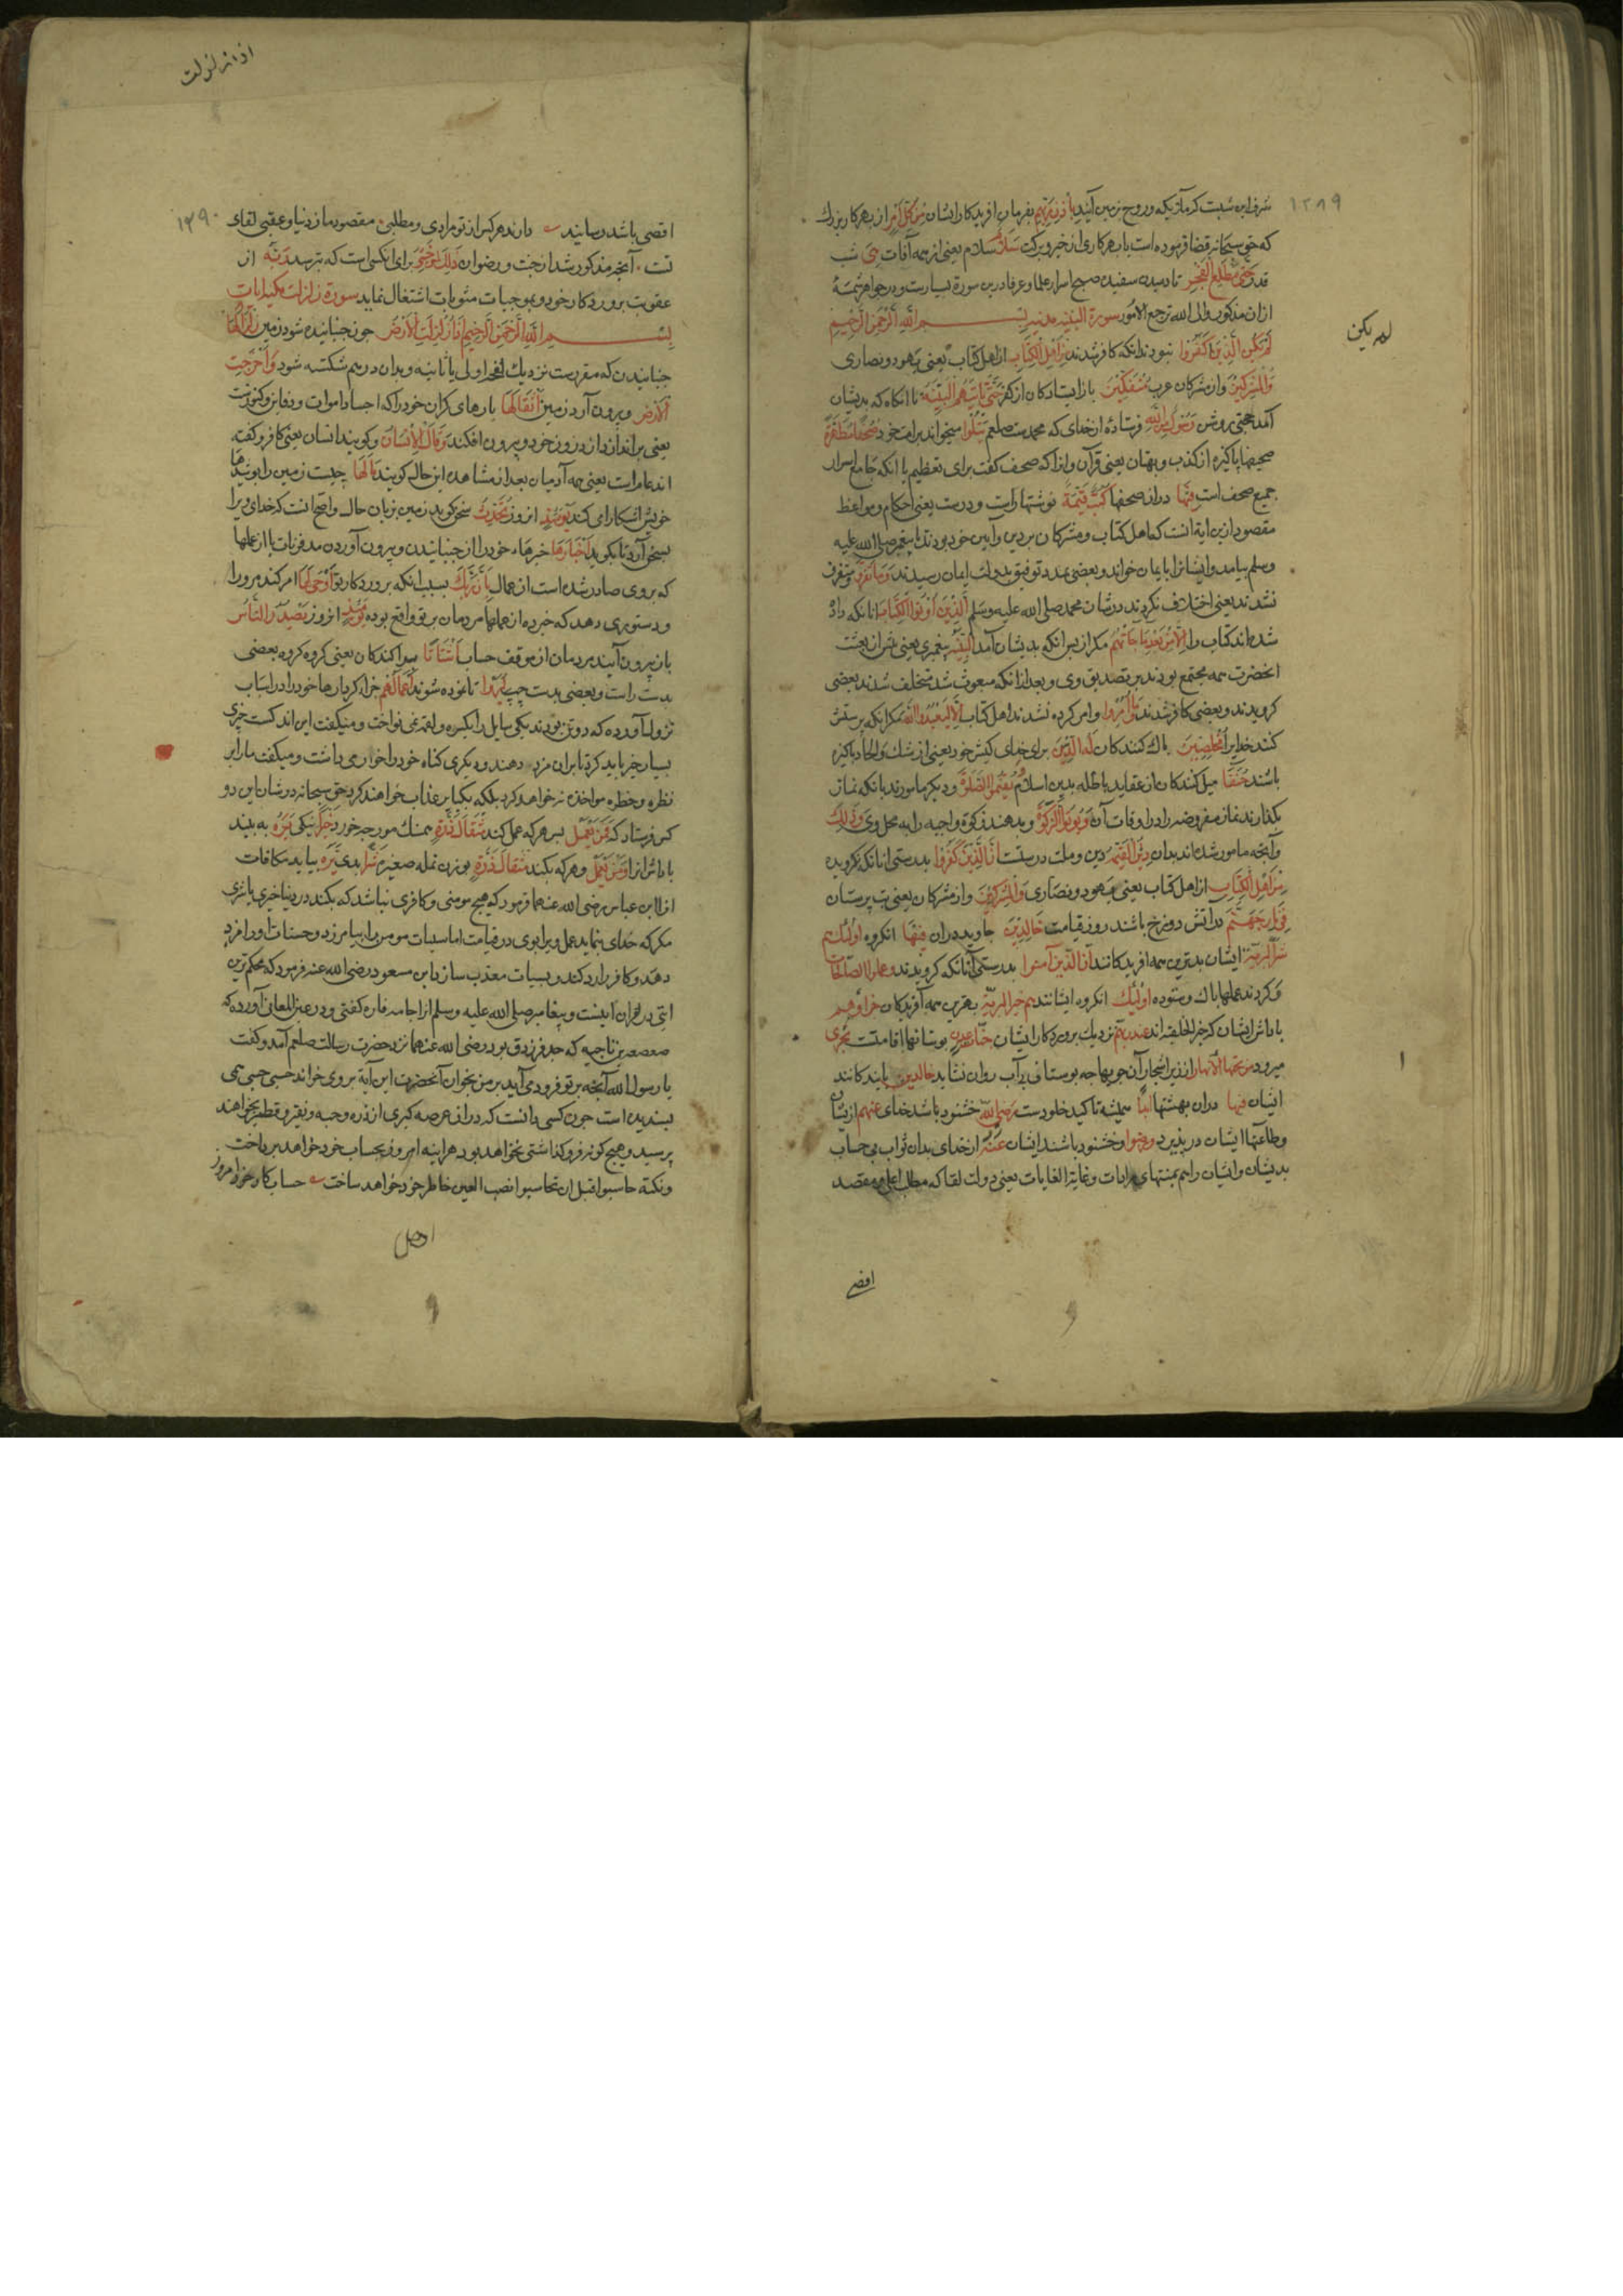 ۱۲۸۹
شرف این شبست کرملائکه و روح بزمین آیند باذن ربهم بفرمان افریدکار ایشان من کل امر از بهر هر کار بزرك
که حق سبحانه قضا فرموده است یا بهر کاری از خیر و برکت سلام سلام یعنی از همه آفات هی شب
قدر حتی مطلع الفجر تا دمیدن سفیده صبح اسرار علما و عرفا درین سورة بسیارست و در جواهر شمهٔ
ازان مذکور والی الله ترجع الامور سورة البینه مدنیه بسم الله الرحمن الرحیم
لم یکن الذین کفروا نبودند انانکه کافر شدند من اهل الکتاب از اهل کتاب یعنی یهود و نصاری
والمشرکین و از مشرکان عرب منفکین باز ایستادکان از کفر حتی تاتیهم البینه تا انکاه که بدیشان
آمد حجتی روشن رسول من الله فرستادهٔ از خدای که محمدست صلعم یتلوا میخواند برامت خود صحفا مطهرة
صحیفها پاکیزه از کذب و بهتان یعنی قرآن و انرا که صحف کفت برای تعظیم یا انکه جامع اسرار
جمیع صحف است فیها دران صحفها کتب قیمة نوشتها راست و درست یعنی احکام و مواعظ
مقصود ازین ایة انست که اهل کتاب و مشرکان بر دین و آیین خود بودند تا پیغمبر صلی الله علیه
وسلم بیامد و ایشانرا بایمان خواند و بعضی بمدد توفیق بدولت ایمان رسیدند وما تفرق و متفرق
نشدند یعنی اختلاف نکردند در شان محمد صلی الله علیه وسلم الذین اوتوا الکتاب انانکه داد
شده اند کتاب را الا من بعد ما جاتهم مکر از پس انکه بدیشان آمد البینه پیغمبری یعنی پیش از بعثت
انحضرت همه مجتمع بودند بر تصدیق وی و بعد ازانکه مبعوث شد مختلف شدند بعضی
کرویدند و بعضی کافر شدند وما امروا و امر کرده نشدند اهل کتاب الا لیعبدوا الله مکر انکه پرستش
کنند خدایرا مخلصین پاك کنندکان له الدین برای خدای کیش خود یعنی از شك و الحاد پاکیزه
باشند حنفا میل کنندکان از عقاید باطله بدین اسلام و یقیموا الصلوة و دیکر مامورند بانکه نماز
بکذارند نماز مفروضه را در اوقات آن و یوتوا الزکوة و بدهند زکوة واجبه را به محل وی و ذلك
و آنچه مامور شده اند بدان دین القیمه دین و ملت درستست ان الذین کفروا بدرستی انانکه نکرویده
من اهل الکتاب از اهل کتاب یعنی یهود و نصاری والمشرکین و از مشرکان یعنی بت پرستان
فی نار جهنم در اتش دوزخ باشند روز قیامت خالدین جاوید دران فیها انکروه اولئك هم
شر البریة ایشان بدترین همه افریدکانند ان الذین آمنوا بدرستی آنانکه کرویدند وعملوا الصالحات
و کردند عملها پاك و ستوده اولئك انکروه ایشانند هم خیر البریة بهترین همه آفریدکان جزاؤهم
پاداش ایشان که خیر الخلیقه اند عند ربهم نزدیك پروردکار ایشان جنات عدن بوستانها اقامتست تجری
میرود من تحتها الانهار از زیر اشجار آن جویها چه بوستان بی آب روان نشاید خالدین پاینده کانند
ایشان فیها دران بهشتها ابدا همیشه تاکید خلودست رضی الله خشنود باشد خدای عنهم از ایشان
و طاعتها ایشان در پذیرد و رضوا و خشنود باشند ایشان عنه از خدای بدان ثواب بی حساب
بدیشان و ایشان را هم بمنتهای مرادات و غایة الغایات یعنی دولت لقا که مطلب اعلی و مقصد
اقصی
لم یکن
اذا زلزلت
۱۲۹۰
اقصی باشد رسانید دارند هر کس از تو مرادی و مطلبی مقصود ما ز دنیا و عقبی لقای
تست آنچه مذکور شد از جنت و رضوان ذلك لمن خشی برای انکس است که بترسد ربه از
عقوبت پروردکار خود و بموجبات مثوبات اشتغال نماید سورة زلزلت مکیه ایات
بسم الله الرحمن الرحیم اذا زلزلت الارض چون جنبانیده شود زمین زلزالها
جنبانیدن که مقررست نزدیك نفخه اولی یا ثانیه و بدان درهم شکسته شود و اخرجت
الارض و بیرون آرد زمین اثقالها بارهای کران خود را که اجساد اموات و دفاین و کنوزست
یعنی براندازد از درون خود و بیرون افکند و قال الانسان و کوید انسان یعنی کافر و کفته
اند عام است یعنی همه آدمیان بعد از مشاهده این حال کویند ما لها چیست زمین را یومئذ
خویش اشکارا می کند یومئذ انروز تحدث سخن کوید زمین بزبان حال و اصح انست که خدای ویرا
بسخن آرد تا بکوید اخبارها خبرهاء خود را از جنبانیدن و بیرون آوردن مدفونات یا از عملها
که بروی صادر شده است از عمال بان ربك بسبب انکه پروردکار تو اوحی لها امر کند مرو را
و دستوری دهد که خبرده از عملها مردمان بر تو واقع بوده یومئذ انروز یصدر الناس
باز بیرون آیند مردمان از موقف حساب اشتاتا پراکندکان یعنی کروه کروه بعضی
بدست راست و بعضی بدست چپ لیروا تا نموده شوند اعمالهم جزاء کردارها خود را در اسباب
نزول آورده که دو تن بودند یکی سایل را بکسره و لقمه نمی نواخت و میکفت این اندکست چیزی
بسیار خیر باید کرد تا بران مزد دهند و دیکری کناه خود را خوار می داشت و میکفت ما را بر
نظره و خطره مواخذه نه خواهد کرد بلکه بکبایر عذاب خواهند کرد حق سبحانه در شان این دو
کس فرستاد که فمن یعمل پس هر که عمل کند مثقال ذرة همسنك مورچه خورد خیرا نیکی یره به بیند
پاداش انرا و من یعمل و هر که بکند مثقال ذرة بوزن نمله صغیره شرا بدی یره بیابد مکافات
انرا ابن عباس رضی الله عنهما فرمود که هیچ مومنی و کافری نباشد که بکند در دنیا خیری یا شری
مکر که خدای بنماید عمل ویرا بوی در قیامت اما سیات مومن را بیامرزد و حسنات او را مزد
دهد و کافر را رد کند و بسیات معذب سازد ابن مسعود رضی الله عنه فرمود که محکم ترین
ایتی در قران اینست و پیغامبر صلی الله علیه وسلم انرا جامعه فاذه کفتی و در عین المعانی آورده که
صعصعه بن ناجیه که جد فرزدق بود رضی الله عنهما نزد حضرت رسالت صلعم آمد و کفت
یا رسول الله آنچه بر تو فرود می آید بر من بخوان آنحضرت این آیة بروی خواند حسبی حسبی می
بسندیده است چون کسی دانست که دران عرصه کبری از ذره و حبه و نقیر و قطمیر بخواهند
پرسید و هیچ کونه فرو کذاشتی نخواهد بود هراینه امروز بحساب خود خواهد پرداخت
و نکته حاسبوا قبل ان تحاسبوا نصب العین خاطر خود خواهد ساخت حساب کار خود امروز